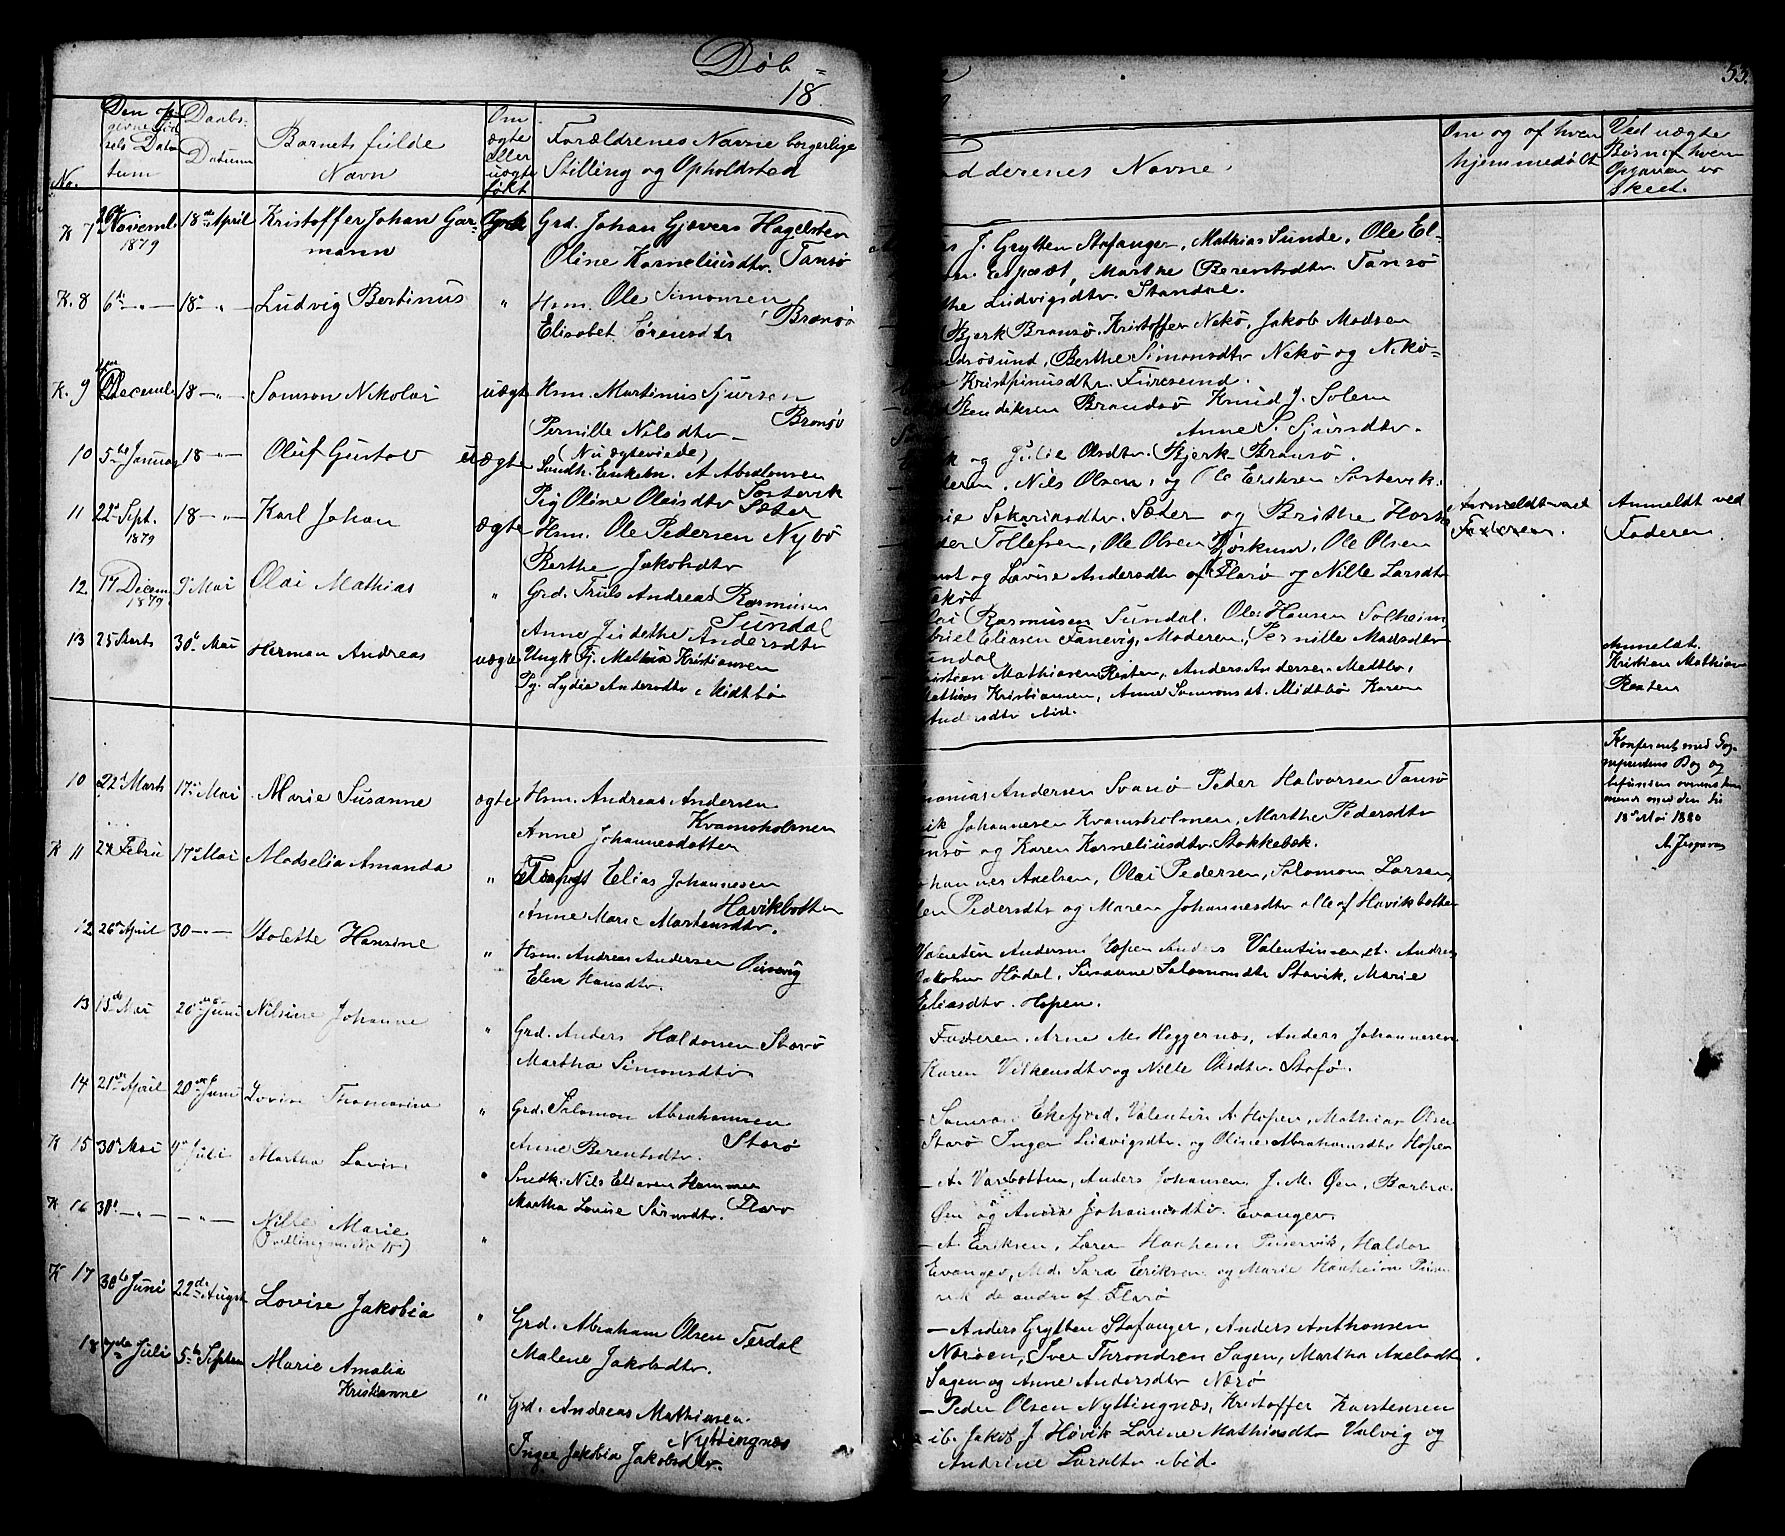 Døb-
18
53.
No.
Den opgivne Fødsels Datum
Daabs-Datum
Barnets fulde Navn
Om ægte eller uægte født
Forældrenes Navne borgerlige Stilling og Opholdsted
Faddernes Navne
Om og af hvem hjemmedøbt
Ved uægte Børn af hvem Opgaven er skeet.
K 7 26de Novembr. 1879 18de April Kristoffer Johan Garmann Ægte Grd. Johan Gjøvers Hagelsten
Oline Korneliusdtr. Tansø
J. Grytten Stafanger, Mathias Sunde, Ole El-
Marthe Berentsdtr. Tansø
Ludvigsdtr. Standal.
K. 8 6te - " - 18de - " - Ludvig Bertinus " Hsm. Ole Simonsen
Elisabet Sørensdtr Bransø
Bjerk Bransø, Kristoffer Nekø, Jakob Madsen
Berthe Simonsdtr Nekø og Nikø-
Kristpinusdtr. Furesund.
K. 9 Decemb. 18 - " - Samson Nikolai uægte Hsm. Martinus Sjursen
Bransø
Pernille Nilsdtr
(Nu ægteviede)
Bendiksen Brandsø Knud J. Solem
Anne S. Sjursdtr.
10 5te Januar 18 - " - Oluf Gustav uægte Sundh. Enkebn. A. Abelonsen
Pig Oline Olaisdtr Sæter
og Julie Olsdtr. Bjerk Bransø.
Nils Olsen, og Ole Eriksen
11 22de Sept. 1879 18 - " - Karl Johan ægte Hsm. Ole Pedersen Nybø
Berthe Jakobsdtr
Sakariasdtr. Sæter og Brithe
Tollefsen, Ole Olsen Ole Olsen
Anmeldt ved
Faderen.
Anmeldt ved
Faderen
12 17 Decem. 1879 9de Mai Olai Mathias " Grd. Truls Andreas Rasmusen
Sundal
Anne Judethe Andersdtr
og Lovise Andersdtr af Florø og Nille Larsdtr
Rasmusen Sundal. Ole Hansen Solheim
Eliasen Fanevig, Moderen, Pernille Madsdtr
13 25 Marts 30te Mai Herman Andreas uægte Ungk Fj. Mathia Kristiansen
Pg. Lydia Andersdtr Midtbø
Mathiasen Resten, Anders Andersen Midtbø,
Kristiansen, Anne Samsonsdt. Midtbø Karen
Andersdtr ibid.
Anmeldt.
Kristian Mathiasen
Resten
10 22de Marts 17de Mai Marie Susanne ægte Hsm. Andreas Andersen
Kvamsholmen
Anne Johannesdatter
Andersen Svanø Peder Halvorsen Tansø
Johannesen Kvamsholmen, Marthe Pedersdtr
og Karen Korneliusdtr. Stokkebæk.
Konfereret med Sog-
neprestens Bog og
befunden overenstem-
mende med den til
18de Mai 1880
K 11 24 Febru 17de Mai Madselia Amanda " Elias Johannesen
Havikbotten
Anne Marie Martensdtr.
Axelsen, Olai Pedersen, Salomon Larsen,
Pedersdtr og Maren Johannesdtr alle af Havikbotten
12 26de April 30 - " - Golette Hansine " Hsm. Andreas Andersen
Elen Hansdtr.
Valentin Andersen Hopen Anders Valentinsen
Jakobsen Hødal, Susanne Salomonsdtr Stavik, Marie
Eliasdtr. Hopen.
13 13de Mai 20de Juni Nilsine Johanne " Grd. Anders Haldorsen Starø
Martha Simonsdtr.
Faderen, Arne M. Heggernæs, Anders Johannesen
Karen Vilkensdtr og Nille Olsdtr. Stafø.
14 21de April 20de Juni Lovise Thomarine " Grd. Salomon Abrahamsen
Starø
Anne Berentsdtr.
- Samson Ekefjord, Valentin A. Hopen, Mathias Olsen
Starø Inger Ludvigsdtr. og Oline Abrahamsdtr Hopen
K 15 30te Mai 4de Juli Martha Lovise " Snedk. Nils Eliasen Hammer
Martha Lovise Sørensdtr. Florø
- A. Varbotten, Anders Johansen J. M. Øen, Barbra
Øen og Anna Johannesdtr. Evanger.
K 16 30te - " - - " - Nille Marie
(Tvilling m. No 15) "
- A. Eriksen, Lærer Hanheim Haldor
Evanger, Md. Sara Eriksen og Marie Hanheim
de andre af Florø
K 17 30te Juni 22de August Lovise Jakobia " Grd. Abraham Olsen Terdal
Malene Jakobsdtr.
- Anders Grytten Stafanger, Anders Anthonsen
Nærøen, Iver Throndsen Sagen, Martha Axelsdt
Sagen og Anne Andersdtr Nærø
18 7de Juli 5te Septem Marie Amalia
Kristianne " Grd. Andreas Mathiasen
Nyttingnæs
Inger Jakobia Jakobsdtr.
- Peder Olsen Nyttingnæs, Kristoffer Karstensen
ib. Jakob J. Høvik Lorine Mathiasdtr Valvig og
Andrine Larsdtr ibid.